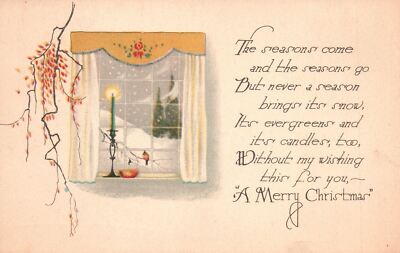 The seasons come
and the seasons go
But never a season
brings its snow,
Its evergreens and
its candles, too,
Without my wishing
this for you,—
"A Merry Christmas"